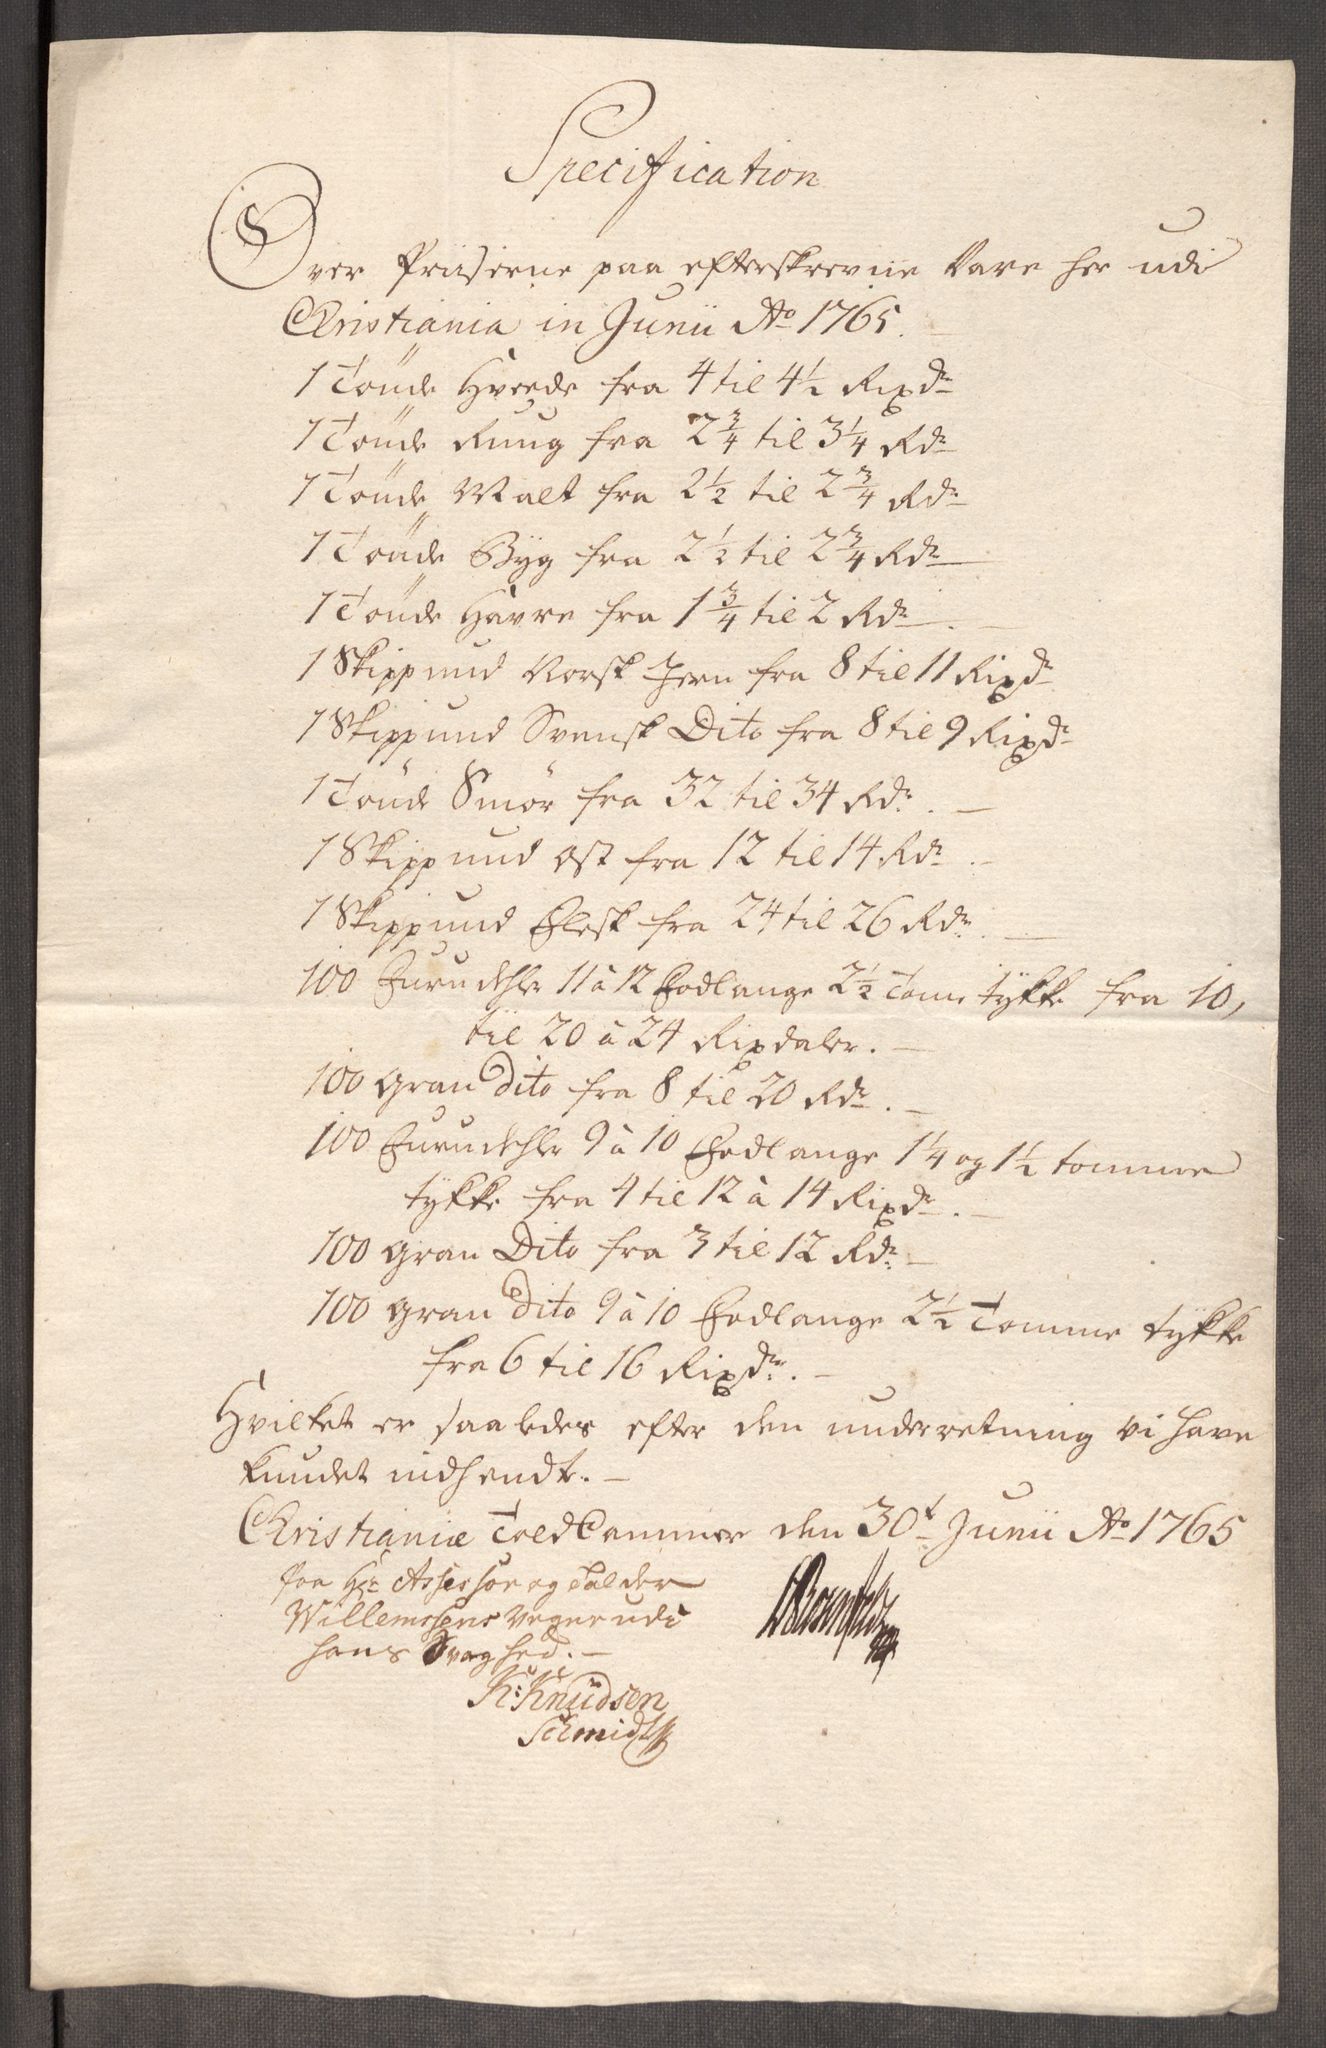 Specification
Over Priiserne paa efterskrevne Vare her udi
Christiania in Junii Ao 1765.
1 Tönde Hvede fra 4 til 4½ Rixdr
1 Tönde Rung fra 2¾ til 3¼ Rdr
1 Tönde Malt fra 2½ til 2¾ Rdr
1 Tönde Byg fra 2½ til 2¾ Rdr
1 Tönde Havre fra 1¾ til 2 Rdr.
1 Skippund Norsk Jern fra 8 til 11 Rixdr
1 Skippund Svensk Dito fra 8 til 9 Rixdr
1 Tönde Smör fra 32 til 34 Rdr.
1 Skippund Ost fra 12 til 14 Rdr.
1 Skippund Flesk fra 24 til 26 Rdr.
100 Furudehler 11 à 12 Fodlange 2½ Tome tykke fra 10,
til 20 à 24 Rixdaler.
100 Gran Dito fra 8 til 20 Rdr.
100 Furudehler 9 à 10 Fodlange 1¼ og 1½ tomme
tykke fra 4 til 12 à 14 Rixdr.
100 Gran Dito fra 3 til 12 Rdr.
100 Gran Dito 9 à 10 Fodlange 2½ Tomme tykke
fra 6 til 16 Rixdr.
Hvilket er saaledes efter den underretning vi have
kundet indhendte.
Christianiæ ToldCammer den 30t Junii Ao 1765
Paa Hr Assessor og Tolder
Willemsens Vegne udi
hans Svaghed.
K: Knudsen
Schmidt